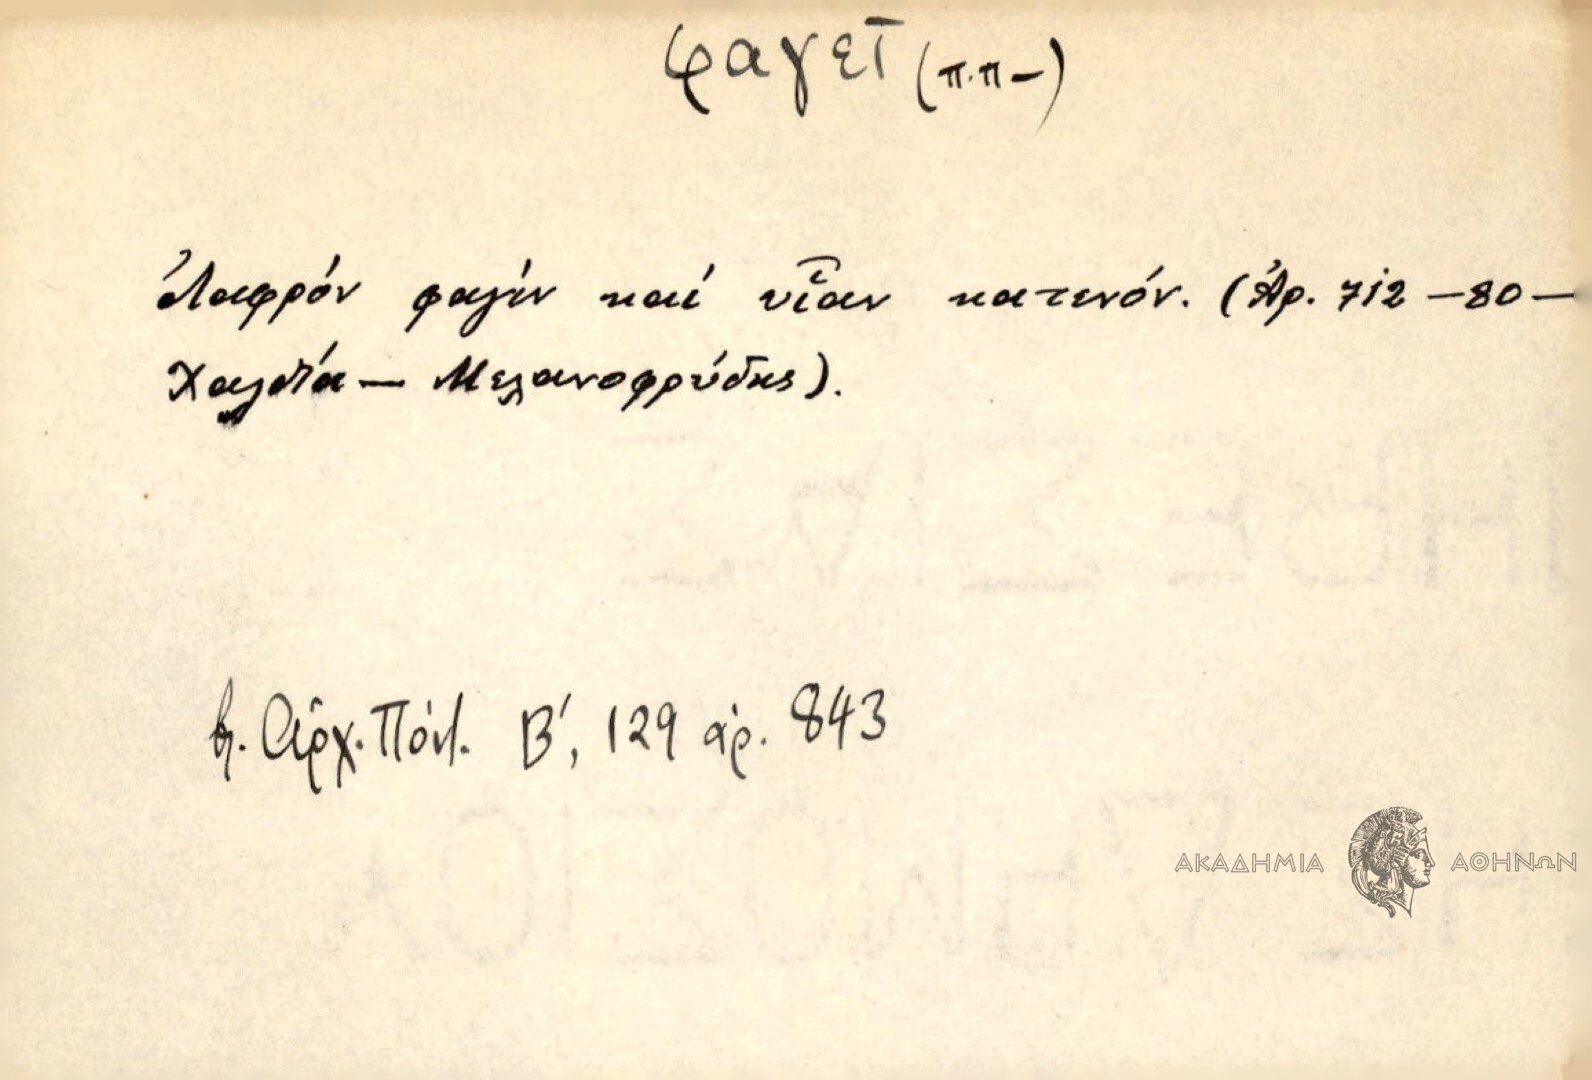 φαγεῖ (π.π-)
ἐλαφρόν φαγίν καί υἵαν κατενόν. (Ἀρ. 712 -80-
Χαλδία - Μελανοφρύδης).
βλ. Ἀρχ. Πόντ. Β΄, 129 ἀρ. 843
ΑΚΑΔΗΜΙΑ ΑΘΗΝΩΝ